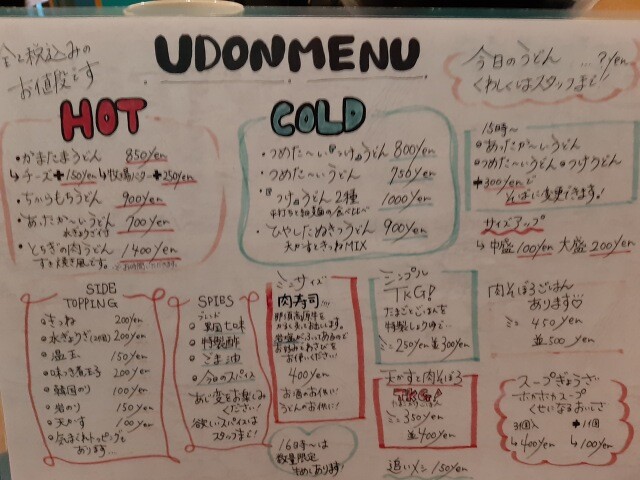 全て税込みの
お値段です
UDON MENU
今日のうどん…?yen
くわしくはスタッフまで!
HOT
・かまたまうどん 850yen
↳チーズ+150yen ↳牧場バター+250yen
・ちからもちうどん 900yen
・あったか〜いうどん 700yen
・とちぎの肉うどん 1400yen
すき焼き風です。
COLD
・つめた〜い つけうどん 800yen
・つめた〜いうどん 750yen
・つけうどん 2種 1000yen
・ひやしたぬきうどん 900yen
天かすときつねMIX
15時〜
・あったか〜いうどん
・つめた〜いうどん・つけうどん
+300yenで
そばに変更できます!
サイズアップ
↳中盛100yen 大盛200yen
SIDE
TOPPING
・きつね 200yen
・水ぎょうざ 200yen
・温玉 150yen
・味つき煮玉子 200yen
・韓国のり 100yen
・岩のり 150yen
・天かす 100yen
・気まぐれトッピングも
あります…
SPIES
・黒国七味
・特製酢
・ごま油
・今日のスパイス
味変をお楽しみ
ください!
欲しいスパイスは
スタッフまで!
ミニサイズ
肉寿司
400yen
お酒のお供に!
うどんのお供に!
16時〜は
数量限定
シンプル
TKG!
たまごとごはんを
特製しょうゆで…
ミニ250yen 並300yen
天かすと肉そぼろ
TKG!
ミニ350yen
並400yen
追いメシ 150yen
肉そぼろごはん
あります♡
ミニ 450yen
並 500yen
スープぎょうざ
ホカホカスープ
くせになるおいしさ
3個入 +1個
↳400yen ↳100yen